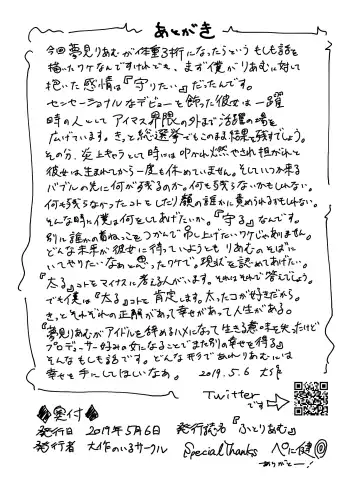 あとがき
今回夢見りあむが体重3桁になったらというもしも話を
描いたワケなんですけれども、まず僕がりあむに対して
抱いた感情は『守りたい』だったんです。
センセーショナルなデビューを飾った彼女は一躍
時の人としてアイマス界隈の外まで活躍の場を
広げています。きっと総選挙でもこのまま結果を残すでしょう。
その分、炎上キャラとして時には叩かれ燃やされ担がれと
彼女は生まれてから一度も休めていません。そしていつか来る
バブルの先に何が残るのか。何も残らないかもしれない。
何も残らなかったコトをしたり顔の誰かに責められるかもしれない。
そんな時に僕は何をしてあげたいか。『守る』なんです。
別に誰かの首ねっこをつかんで吊し上げたいワケじゃありません。
どんな未来が彼女に待っていようとも りあむのそばに
いてやりたいなぁと思ったワケで。現状を認めてあげたい。
『太る』コトをマイナスに考える人がいます。それはそれで答えでしょう。
でも僕は『太る』コトを肯定します。太ったコが好きだから。
きっとそれぞれの正解があって幸せがあって人生がある。
『夢見りあむがアイドルを辞めるハメになって生きる意味を失ったけど
プロデューサー好みの女になることでまた別の幸せを得る』
そんなもしも話です。どんな形であれりあむには
幸せを手にしてほしいなぁ。 2019.5.6 大作
Twitter
です
◆奥付◆
発行日 2019年5月6日 発行誌名『ふとりあむ』
発行者 大作のいるサークル Special Thanks べに健
ありがとー!